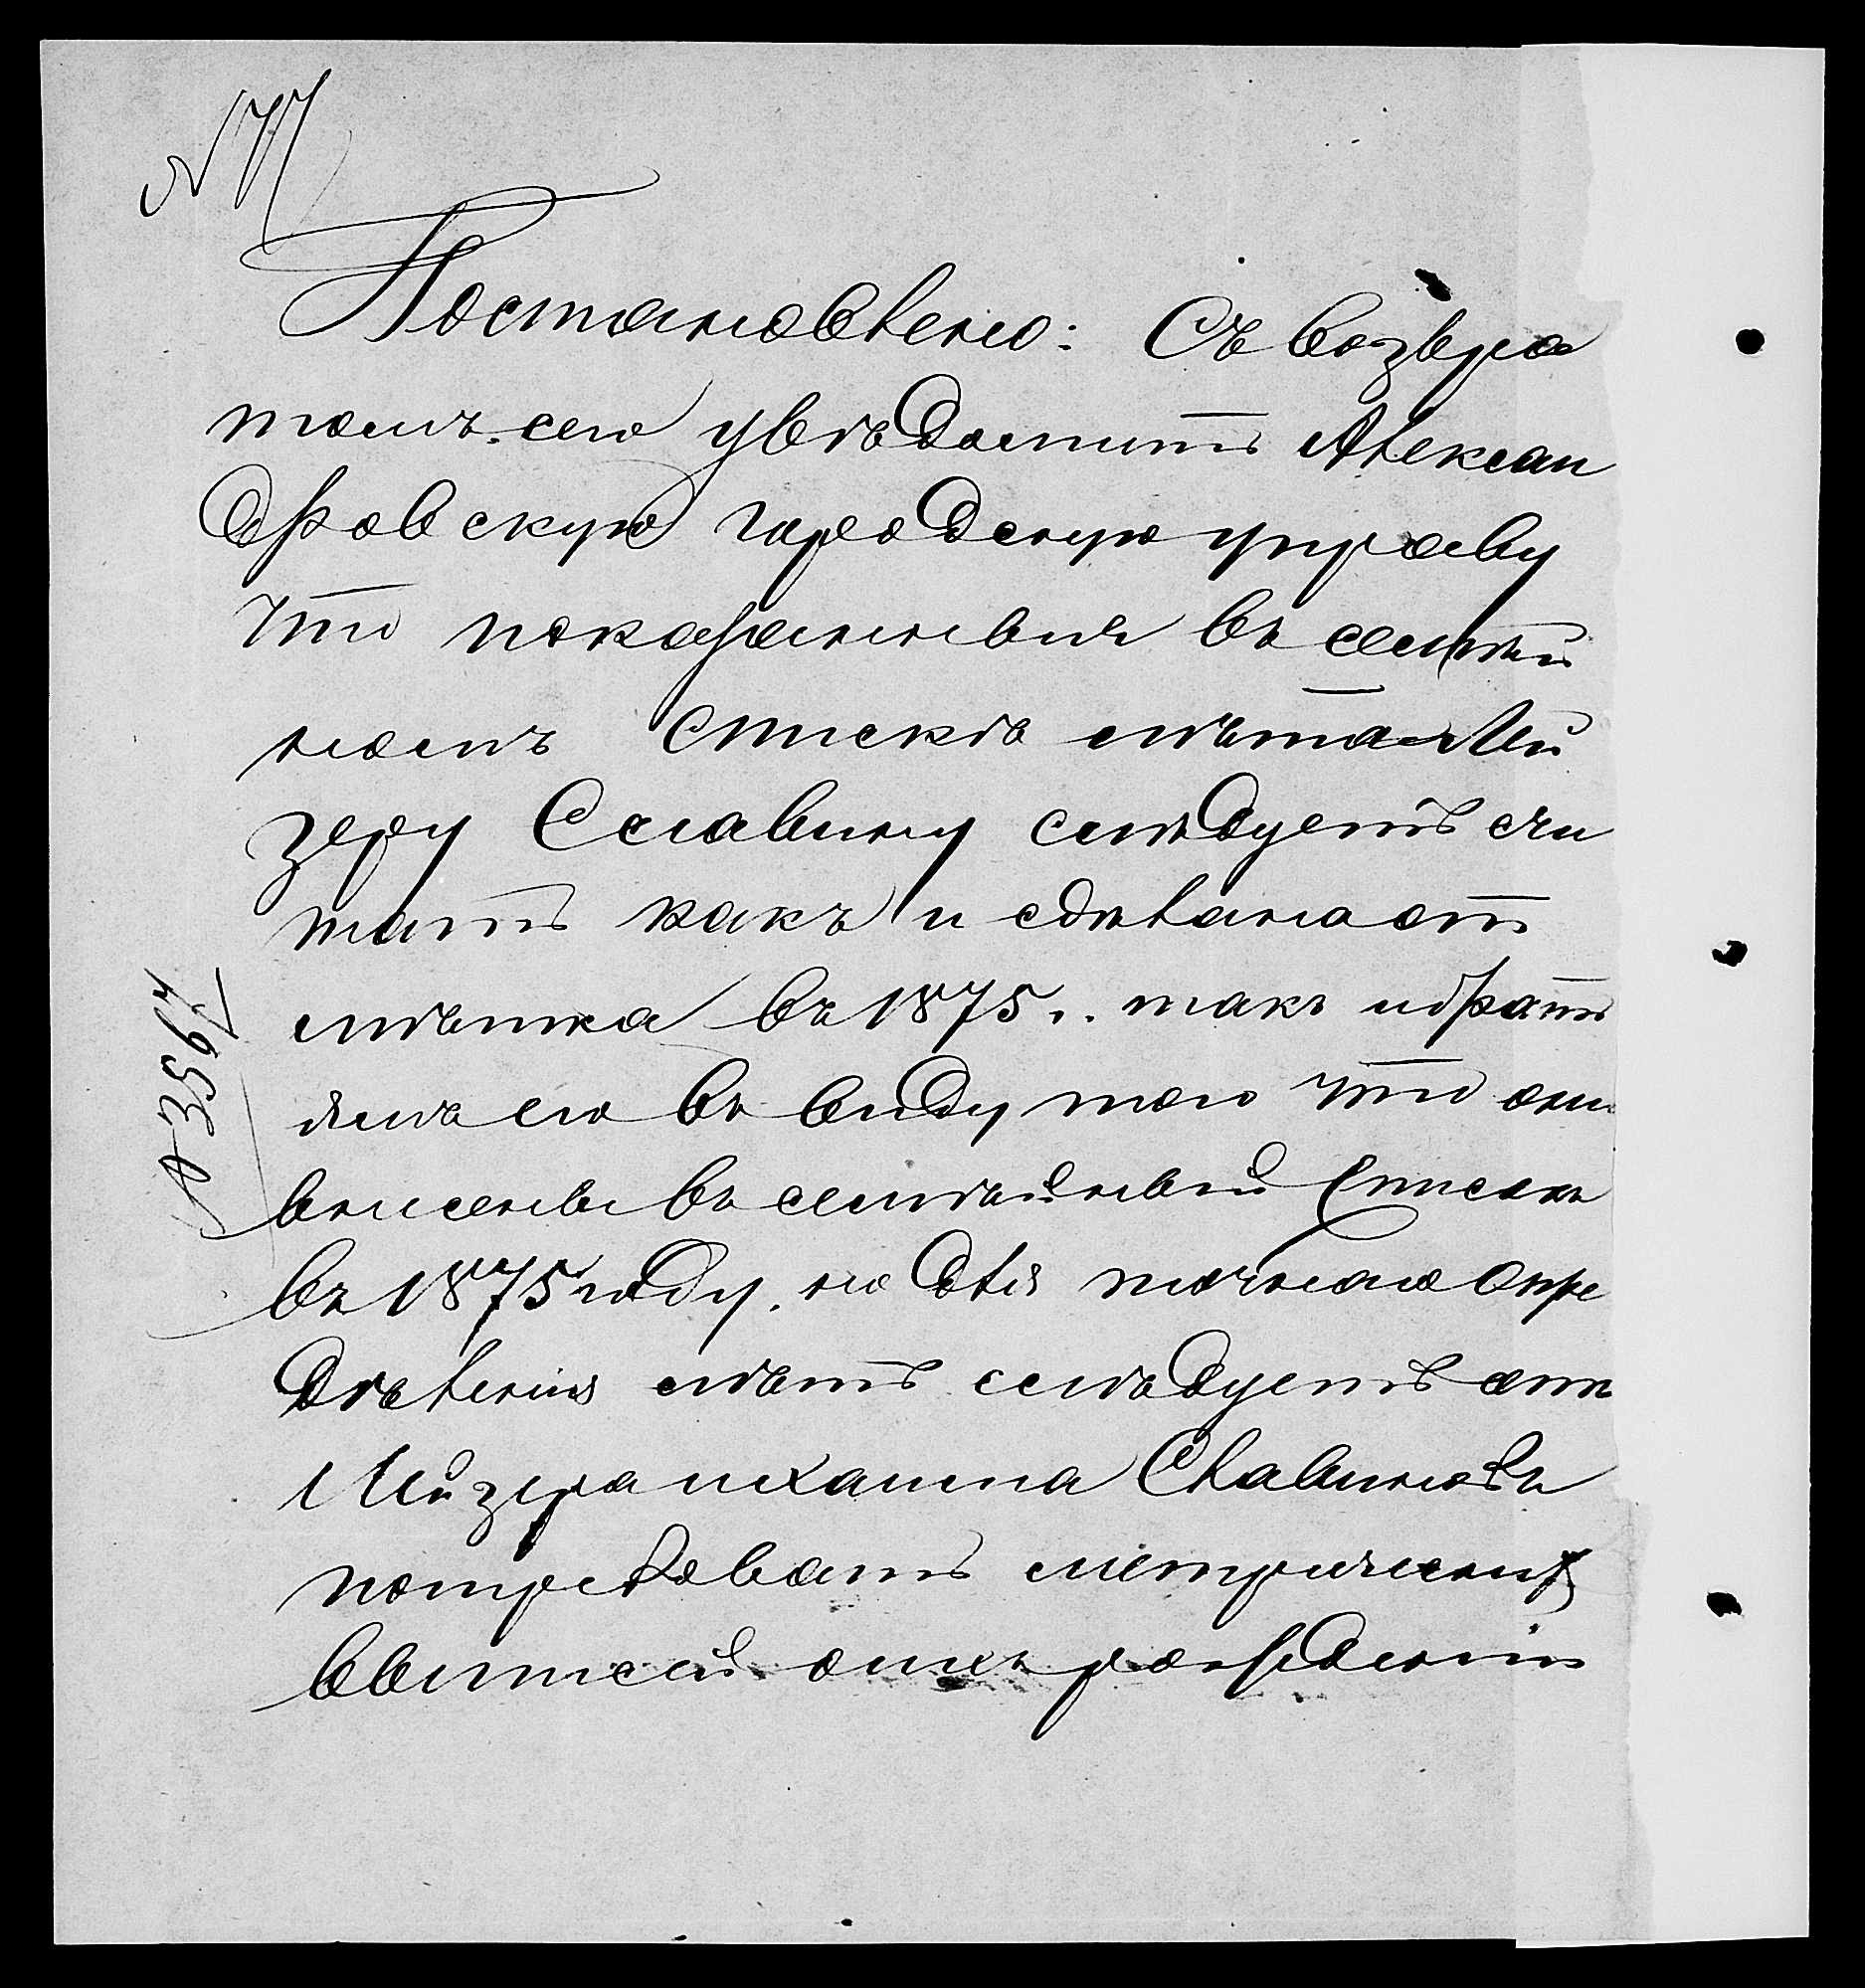 № 77
Постановлено: Съ возвра
томъ сего увѣдомить Алексан
дровскую городскую управу
что показанныя въ семѣй
номъ спискѣ лѣта Лей
зеру Славину слѣдуетъ счи
тать какъ и сдѣлана от
мѣтка въ 1875 г. такъ и брать
ямъ его въ виду того что они
внисены въ семѣйный списокъ
въ 1875 году, но для точнаго опре
дѣленія лѣтъ слѣдуетъ отъ
Лейзера и Хаима Славиновъ
потребовать метрическихъ
выписей о ихъ рожденіи
№ 3567